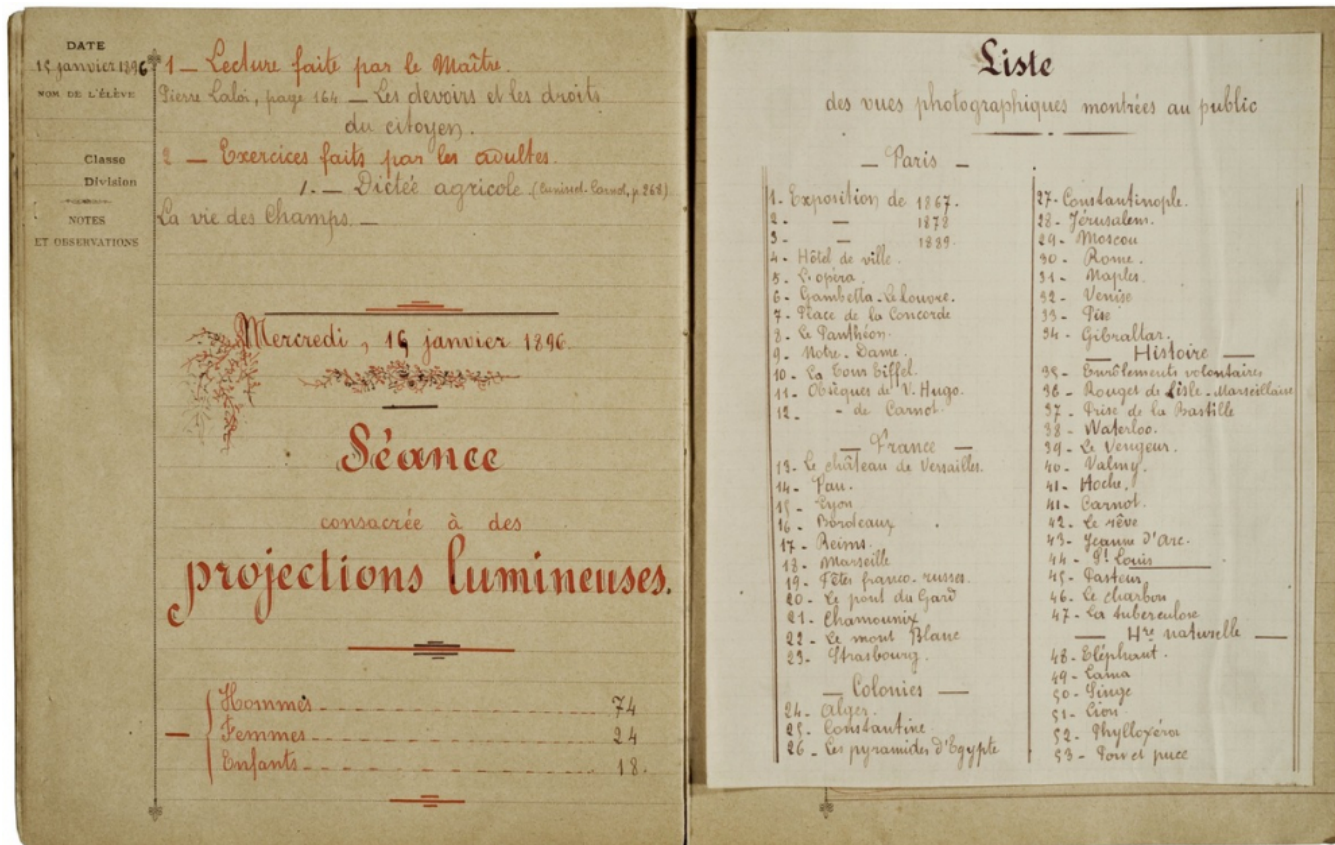 DATE
15 janvier 1896
NOM DE L'ÉLÈVE
Classe
Division
NOTES
ET OBSERVATIONS
1 — Lecture faite par le Maître.
Pierre Laloi, page 164 — Les devoirs et les droits
du citoyen.
2 — Exercices faits par les adultes.
1. — Dictée agricole (Cunisset-Carnot, p. 268)
La vie des Champs. —
Mercredi, 15 janvier 1896.
Séance
consacrée à des
projections lumineuses.
Hommes 74
Femmes 24
Enfants 18.
Liste
des vues photographiques montrées au public
— Paris —
1 - Exposition de 1867.
2 - — 1878
3 - — 1889.
4 - Hôtel de ville.
5 - L'opéra.
6 - Gambetta - Le louvre.
7 - Place de la Concorde
8 - Le Panthéon.
9 - Notre-Dame.
10 - La Tour Eiffel.
11 - Obsèques de V. Hugo.
12 - - de Carnot.
— France —
13 - Le château de Versailles.
14 - Pau.
15 - Lyon
16 - Bordeaux
17 - Reims.
18 - Marseille
19 - Fêtes franco-russes.
20 - Le pont du Gard
21 - Chamounix
22 - Le mont Blanc
23 - Strasbourg.
— Colonies —
24 - Alger.
25 - Constantine
26 - Les pyramides d'Egypte
27 - Constantinople.
28 - Jérusalem.
29 - Moscou
30 - Rome.
31 - Naples.
32 - Venise
33 - Pise
34 - Gibraltar.
— Histoire —
35 - Enrôlements volontaires
36 - Rouges de Lisle - Marseillaise
37 - Prise de la Bastille
38 - Waterloo.
39 - Le Vengeur.
40 - Valmy.
41 - Hoche.
41 - Carnot.
42 - Le rêve
43 - Jeanne d'Arc.
44 - St Louis
45 - Pasteur
46 - Le charbon
47 - La tuberculose
— Hre naturelle —
48 - Eléphant.
49 - Lama
50 - Singe
51 - Lion
52 - Phylloxéra
53 - Pou et puce